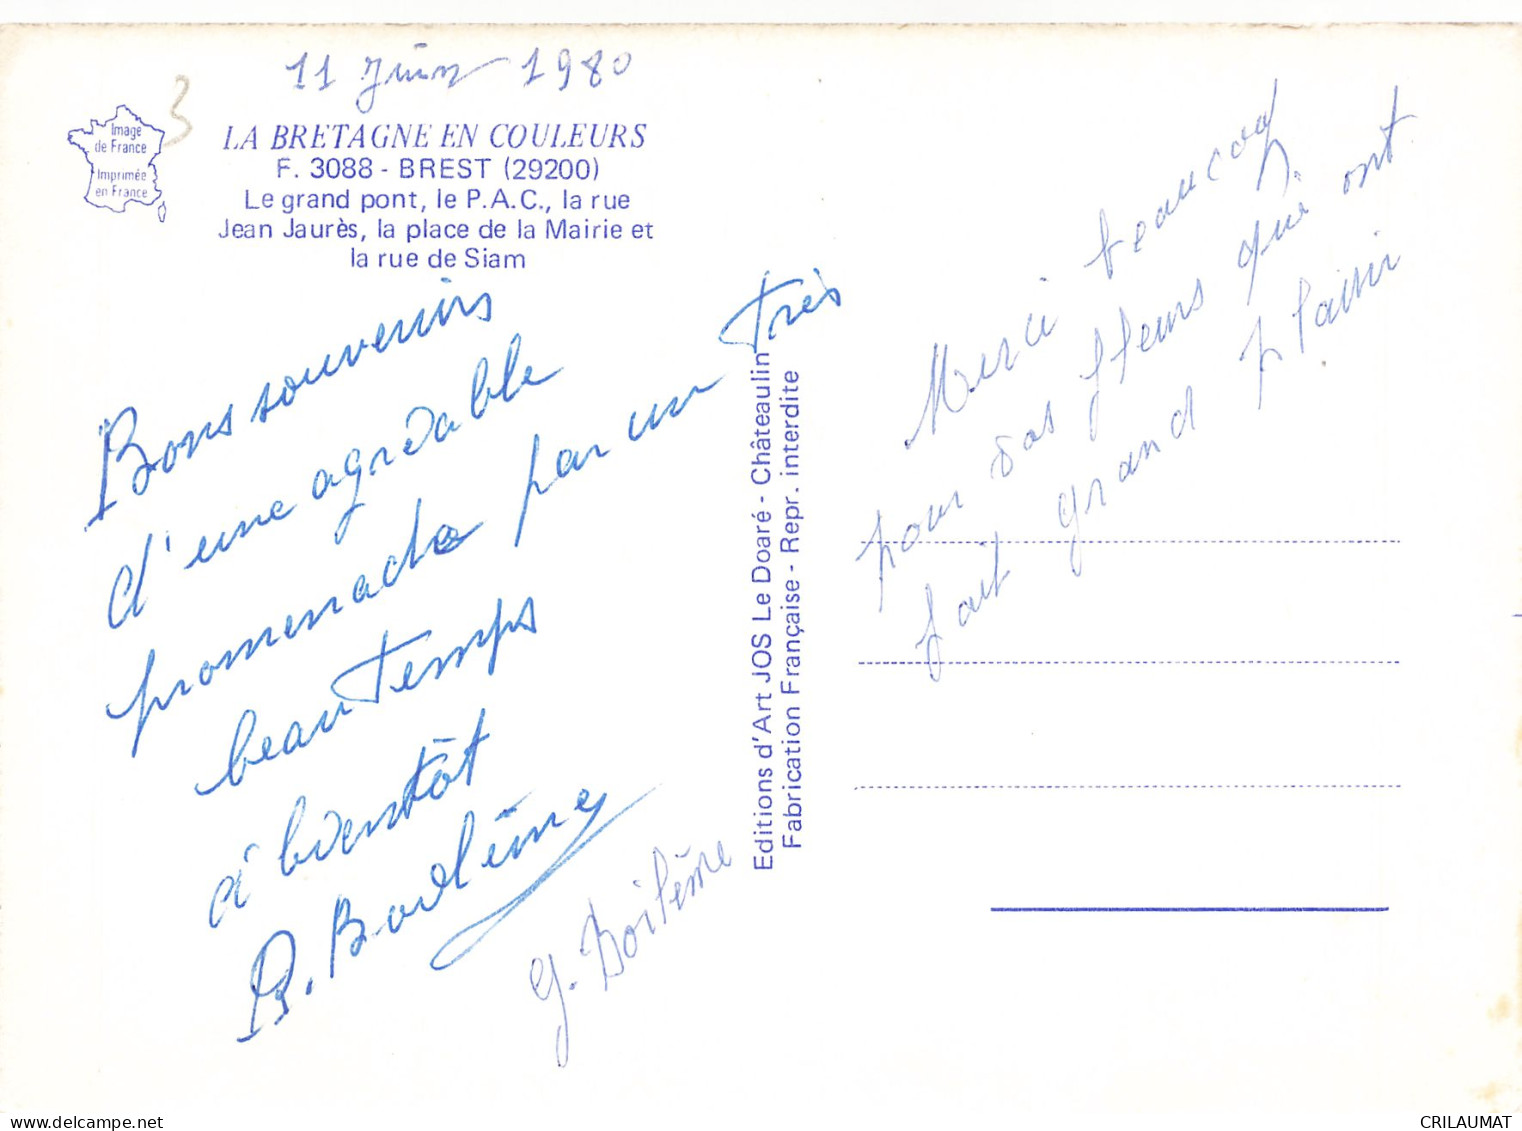 11 Juin 1980
3
Image
de France
Imprimée
en France
LA BRETAGNE EN COULEURS
F. 3088 - BREST (29200)
Le grand pont, le P.A.C., la rue
Jean Jaurès, la place de la Mairie et
la rue de Siam
Bons souvenirs
d'une agréable
promenade par un très
beau temps
à bientôt
R. Boilême
G. Boilême
Editions d'Art JOS Le Doaré - Châteaulin
Fabrication Française - Repr. interdite
Merci beaucoup
pour vos fleurs qui ont
fait grand plaisir
delcampe.net
CRILAUMAT